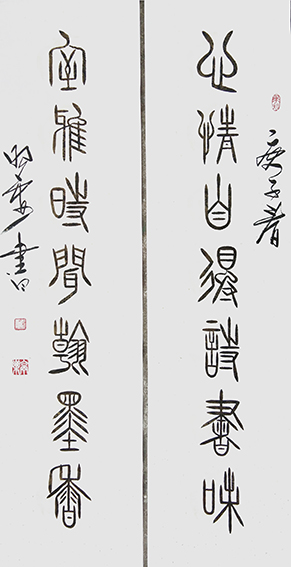 庚子春
心清自得詩書味
室雅時聞翰墨香
書